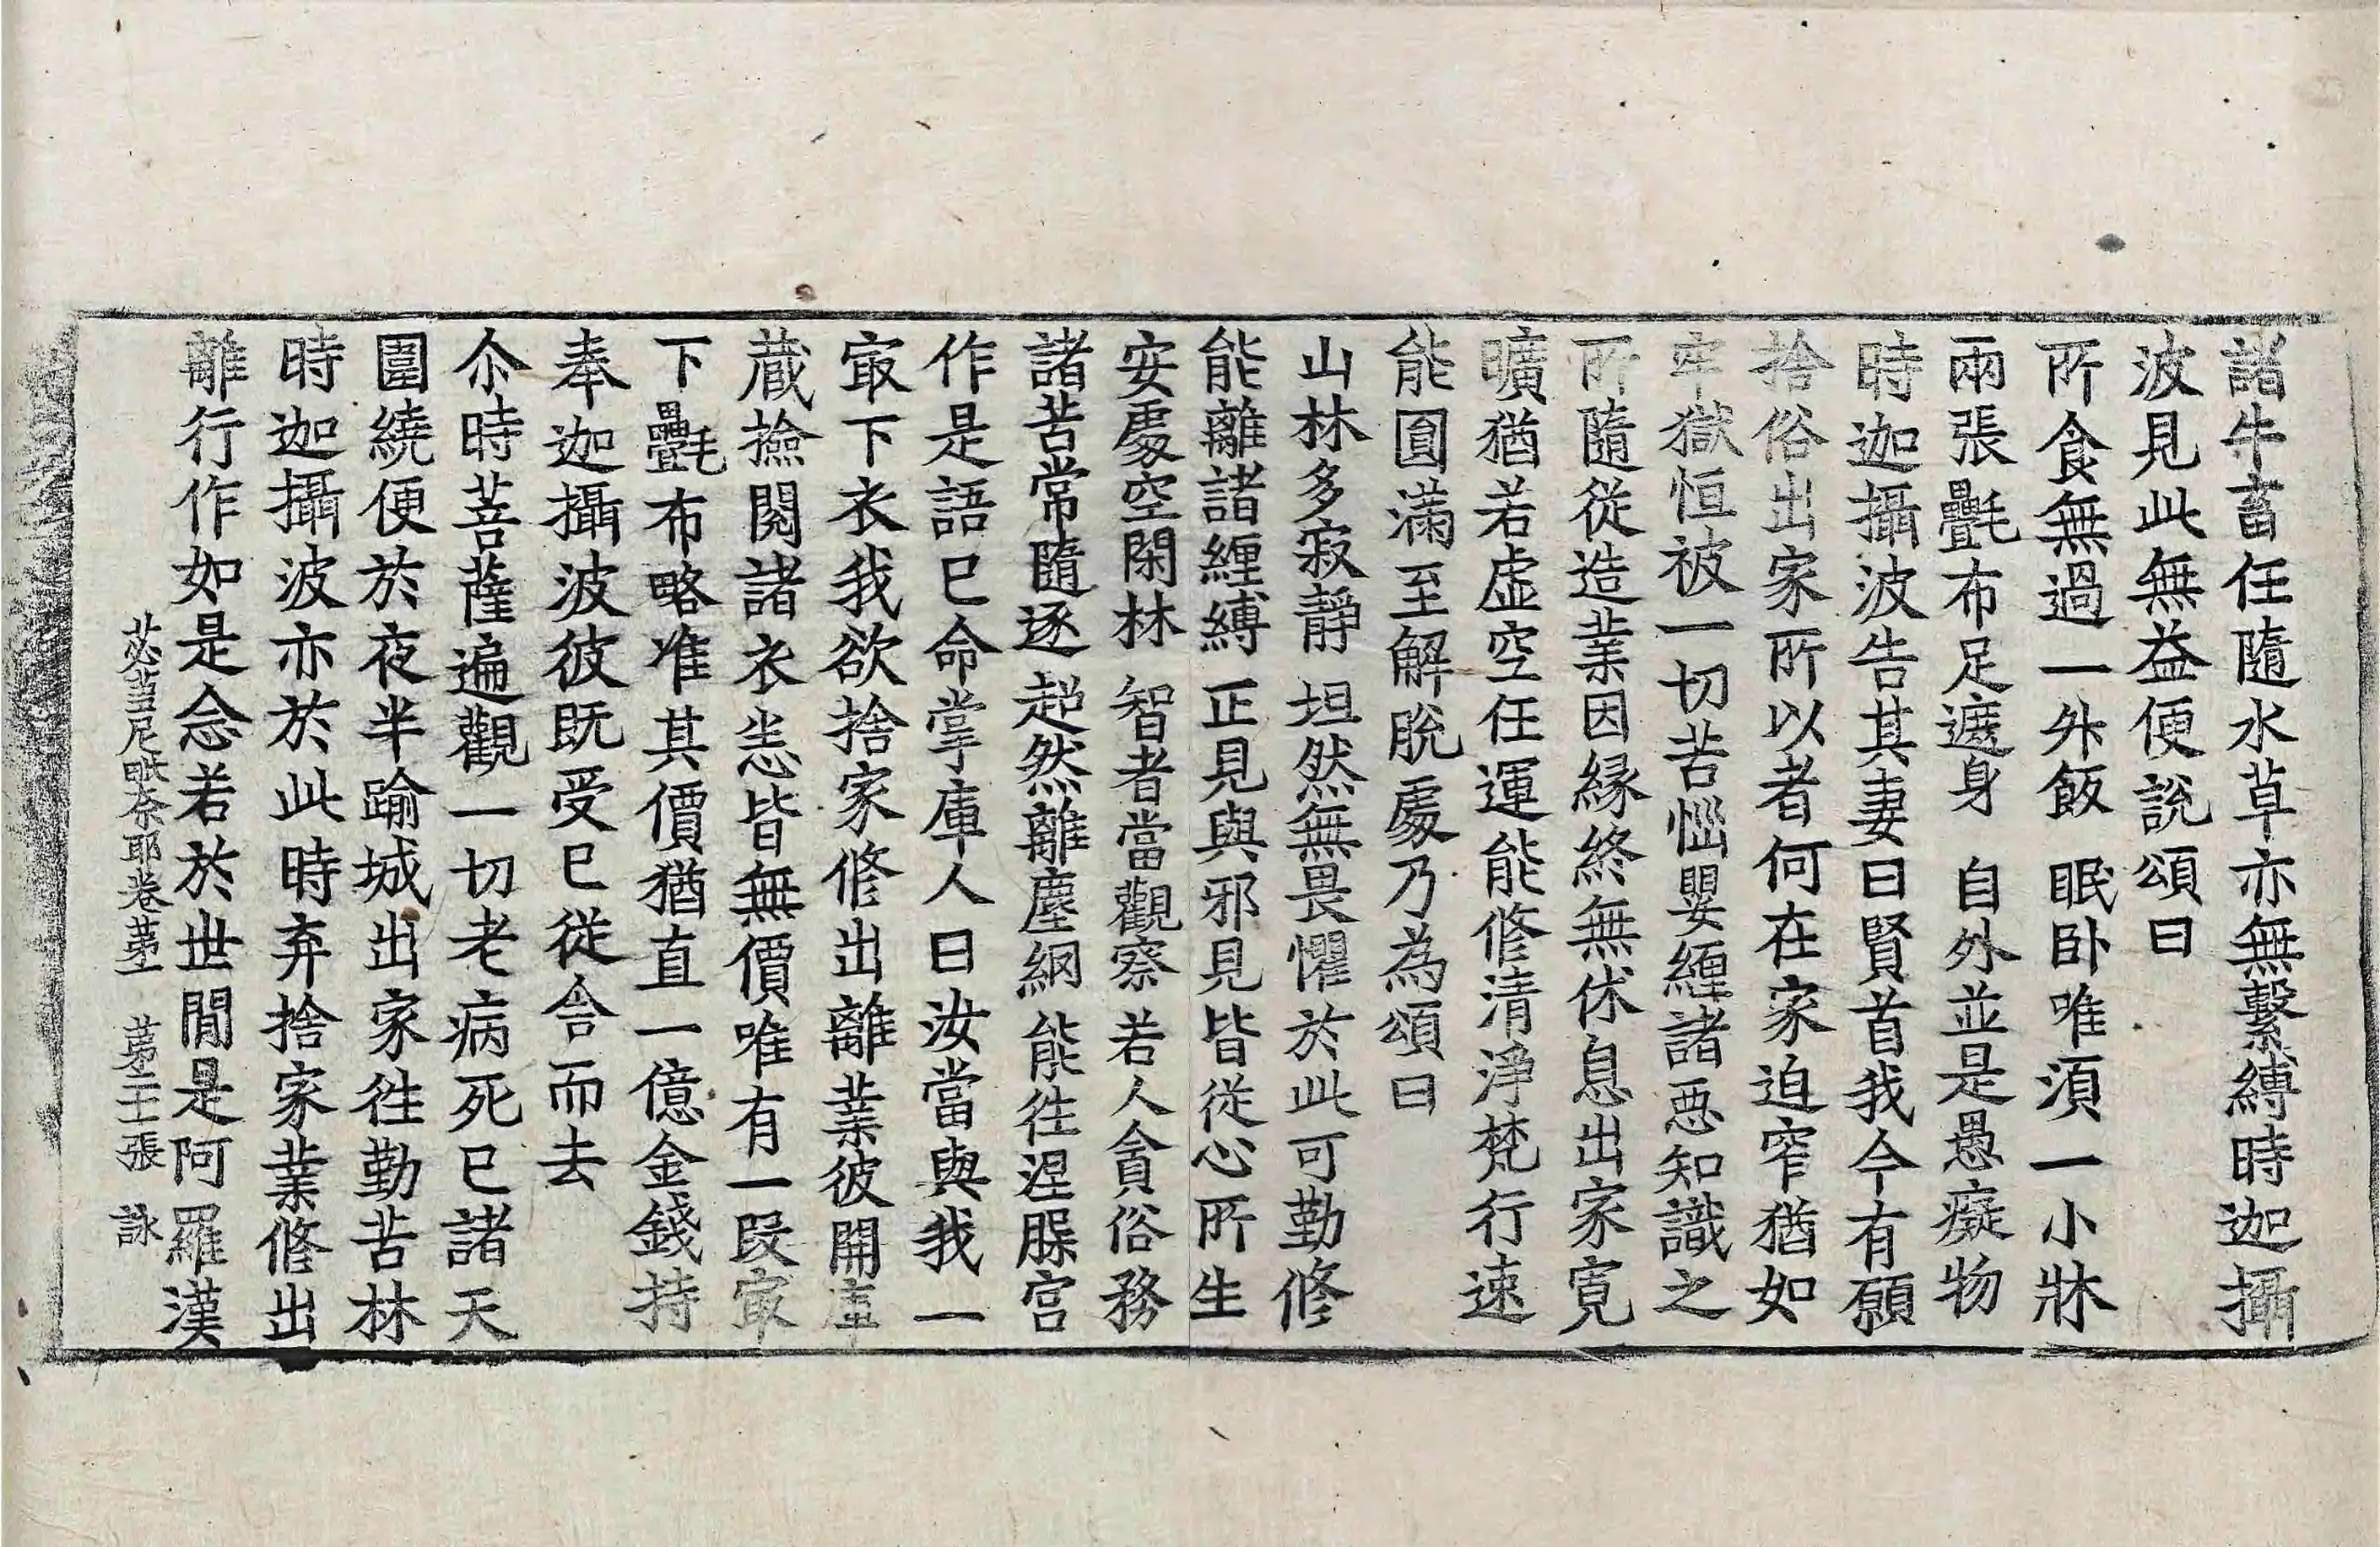 諸牛畜任隨水草亦無繫縛時迦攝
波見此無益便說頌曰
所食無過一升飯　眠卧唯湏一小牀
兩張㲲布足遮身　自外並是愚癡物
時迦攝波告其妻曰賢首我今有願
捨俗出家所以者何在家迫窄猶如
牢獄恒被一切苦惱嬰纏諸惡知識之
所隨從造業因縁終無休息出家寬
曠猶若虛空任運能修清淨梵行速
能圓滿至解脫處乃為頌曰
山林多寂靜　坦然無畏懼於此可勤修
能離諸纏縛　正見與邪見皆從心所生
安處空閑林　智者當觀察　若人貪俗務
諸苦常隨逐　超然離塵網　能徃涅槃宮
作是語已命掌庫人曰汝當與我一
㝡下衣我欲捨家修出離業彼開庫
藏撿閱諸衣悉皆無價唯有一段㝡
下㲲布略准其價猶直一億金錢持
奉迦攝波彼既受已從舍而去
尒時菩薩遍觀一切老病死已諸天
圍繞便於夜半踰城出家徃勤苦林
時迦攝波亦於此時弃捨家業修出
離行作如是念若於世間是阿羅漢
苾蒭尼毗奈耶卷第一　第二十張　詠